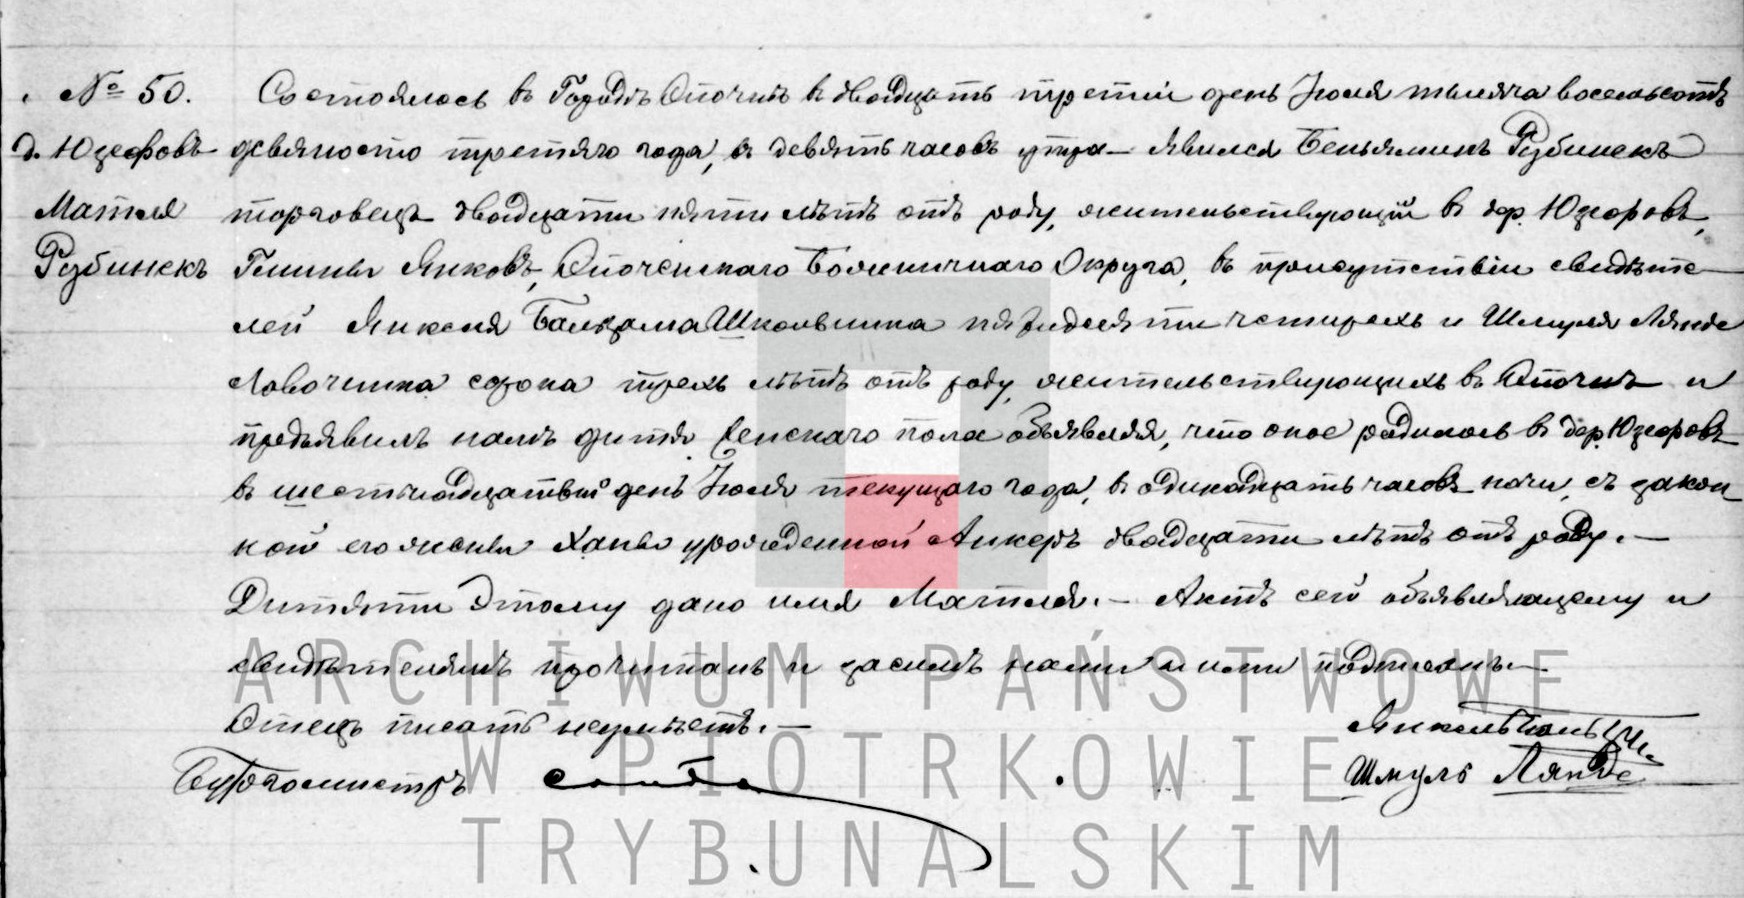 № 50. Состоялось въ Городѣ Опочнѣ въ двадцать третій день Іюля тысяча восемьсотъ
д. Юзефовъ девяносто третяго года, въ девять часовъ утра явился Беньяминъ Рубинекъ
Матля торговецъ двадцати пяти лѣтъ отъ роду, жительствующій въ дер. Юзефовъ,
Рубинекъ Гмины Янковъ, Опоченскаго Божничнаго Округа, въ присутствіи свидѣте
лей Янкеля Бальзама Школьника пятидесяти четырехъ и Шмуля Лянде
Лавочника сорока трехъ лѣтъ отъ роду, жительствующихъ въ Опочнѣ и
предъявилъ намъ дитя женскаго пола объявляя, что оное родилось въ дер. Юзефовъ
въ шестнадцатый день Іюля текущаго года, въ одинадцать часовъ ночи, съ закон
ной его жены Ханы урожденной Анкеръ двадцати лѣтъ отъ роду.—
Дитяти этому дано имя Матля.— Актъ сей объявляющему и
свидѣтелямъ прочитанъ и засимъ нами и ими подписанъ.—
Отецъ писать неумѣетъ.—
Янкель
Бургомистръ Шмуль Лянде
ARCHIWUM PAŃSTWOWE
W PIOTRKOWIE
TRYBUNALSKIM